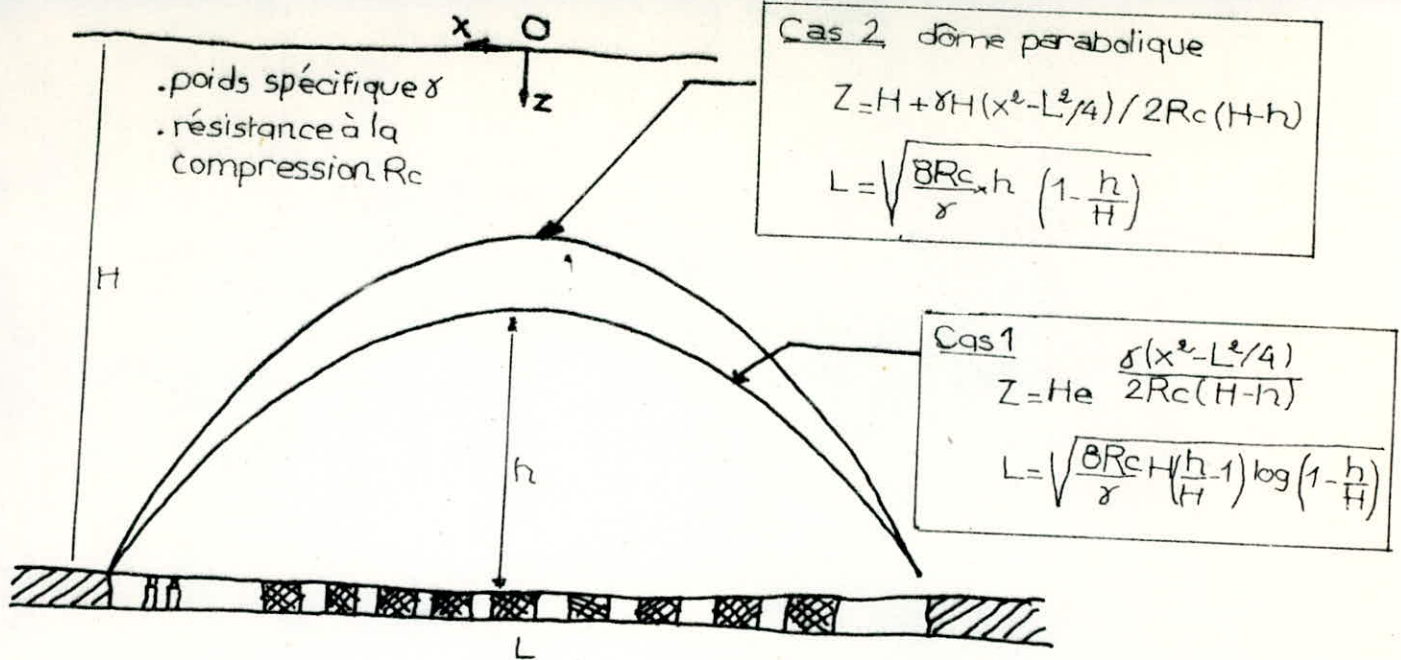 X O
Z
.poids spécifique γ
.résistance à la
compression Rc
H
Cas 2 dôme parabolique
Z=H+γH(x²-L²/4)/2Rc(H-h)
L=√(8Rc/γ × h (1-h/H))
Cas 1
Z=He^(γ(x²-L²/4)/2Rc(H-h))
L=√(8Rc/γ H(h/H-1)log(1-h/H))
h
L